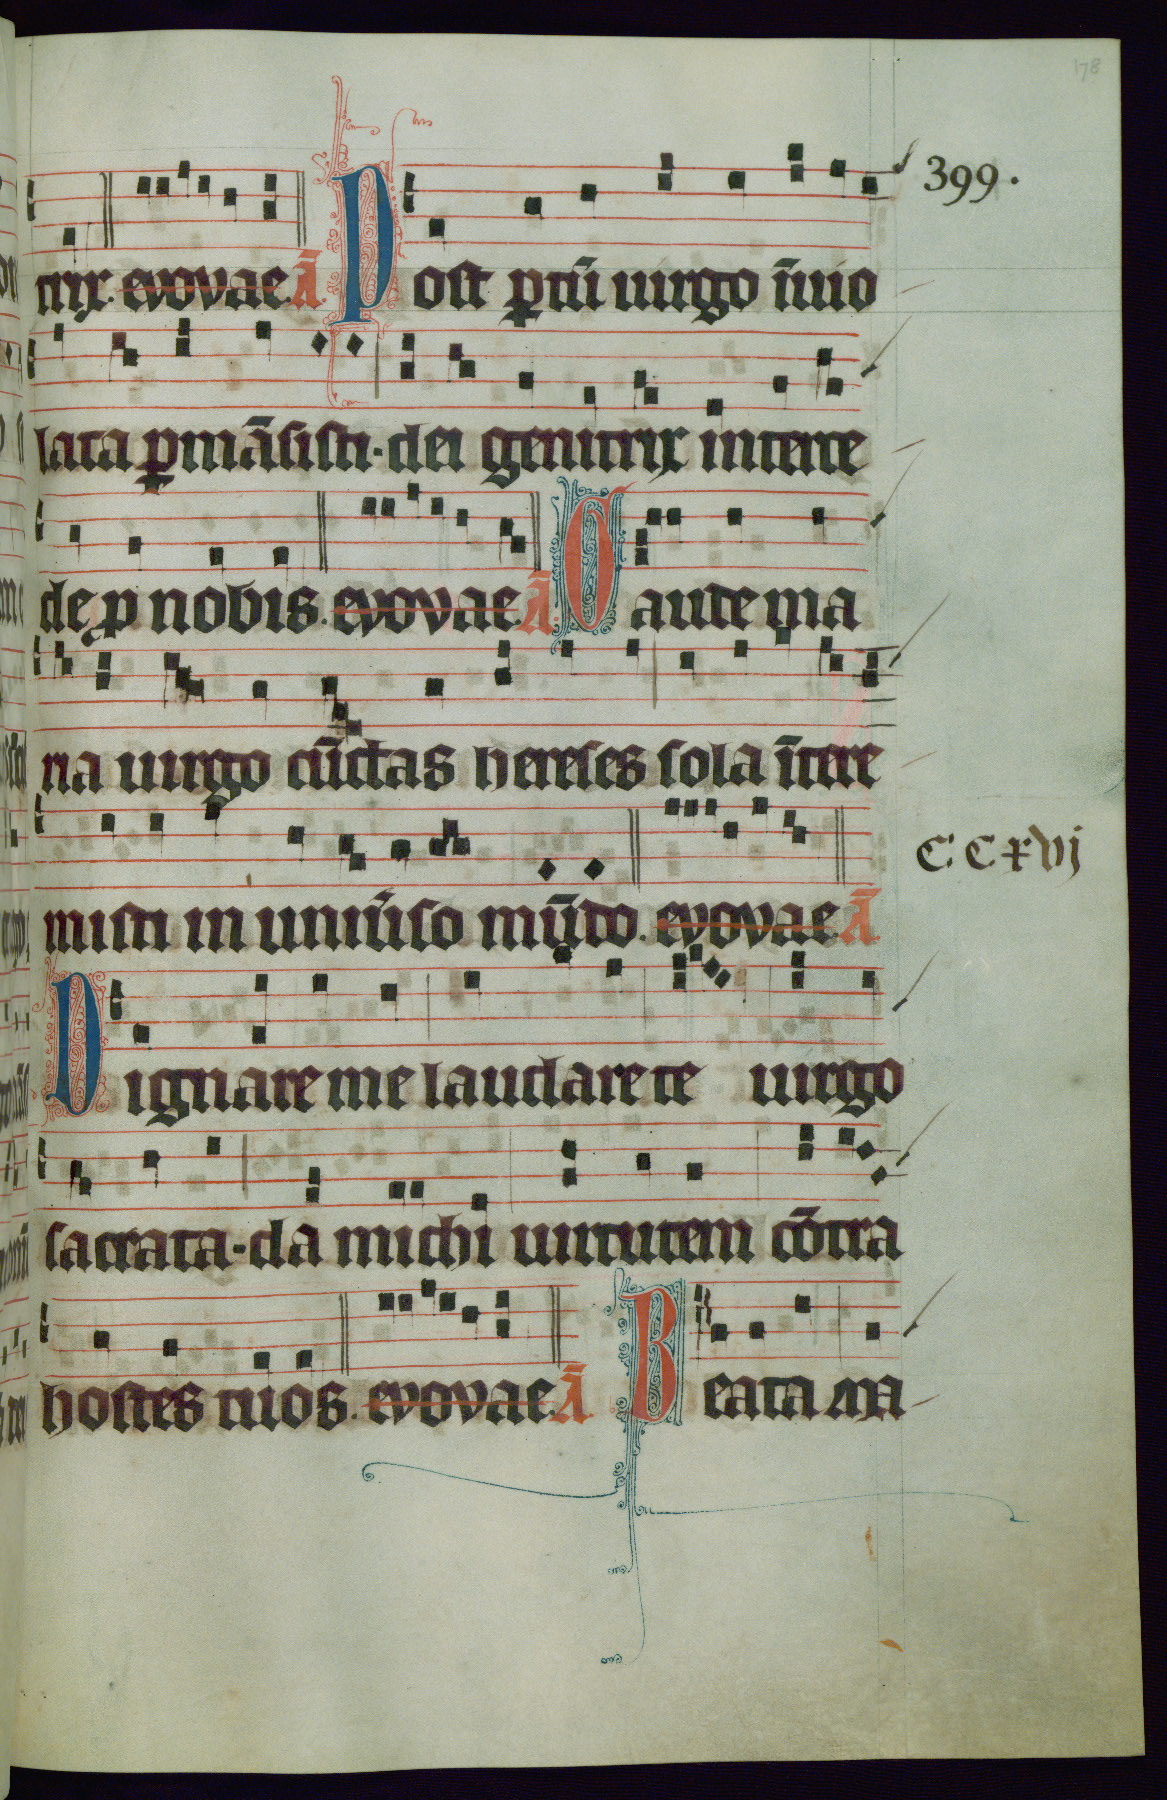 178
399.
trix. evovae. Ā. Post ꝑtū uirgo īuio
lata ꝑmāsisti. dei genitrix interce
de ꝓ nobis. evovae. Ā. Gaude ma
ria uirgo cūctas hereses sola ītere
misti in uniūso mūdo. evovae Ā
CCxvij
Dignare me laudare te uirgo
sacrata. da michi uirtutem cōtra
hostes tuos. evovae. Ā Beata ma